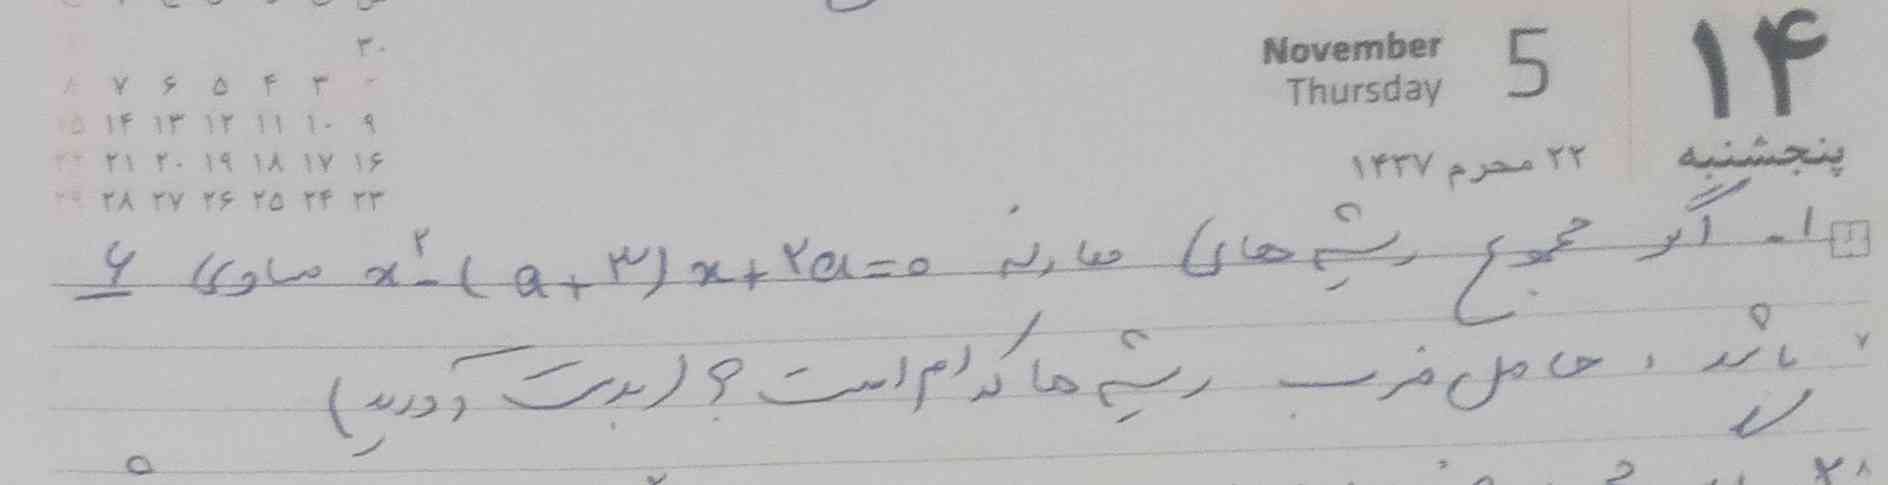 ۳۰
November 5 ۱۴
Thursday
۸ ۷ ۶ ۵ ۴ ۳
۱۵ ۱۴ ۱۳ ۱۲ ۱۱ ۱۰ ۹
۲۲ ۲۱ ۲۰ ۱۹ ۱۸ ۱۷ ۱۶
۲۹ ۲۸ ۲۷ ۲۶ ۲۵ ۲۴ ۲۳
۲۲ محرم ۱۴۳۷ پنجشنبه
۱- اگر مجموع ریشه های معادله x²-(a+۳)x+۲a=0 مساوی ۶
۷ باشد، حاصل ضرب ریشه ها کدام است؟ (بدست آورید)
۸